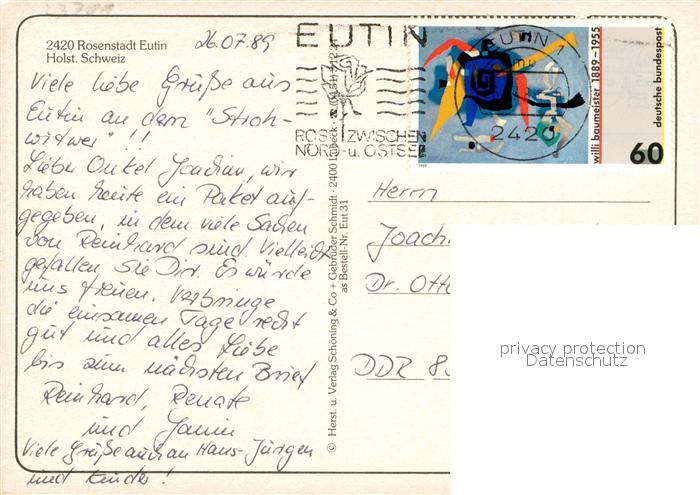 2420 Rosenstadt Eutin
Holst. Schweiz
26.07.89
Viele liebe Grüße aus
Eutin an den "Stroh-
witwer" !!
Lieber Onkel Joachim, wir
haben heute ein Paket auf-
gegeben, in dem viele Sachen
von Reinhard sind. Vielleicht
gefallen Sie Dir. Es würde
uns freuen. Verbringe
die einsamen Tage recht
gut und alles Liebe
bis zum nächsten Brief
Reinhard, Renate
und Janin
Viele Grüße auch an Hans-Jürgen
und Kinder!
© Herst. u. Verlag Schöning & Co + Gebrüder Schmidt · 2400 Lübeck
as Bestell-Nr. Eut 31
EUTIN
ROSE ZWISCHEN
NORD- u. OSTSEE
EUTIN 1
2420
willi baumeister 1889–1955
deutsche bundespost
60
Herrn
Joachi
Dr. Otto
DDR 8
privacy protection
Datenschutz